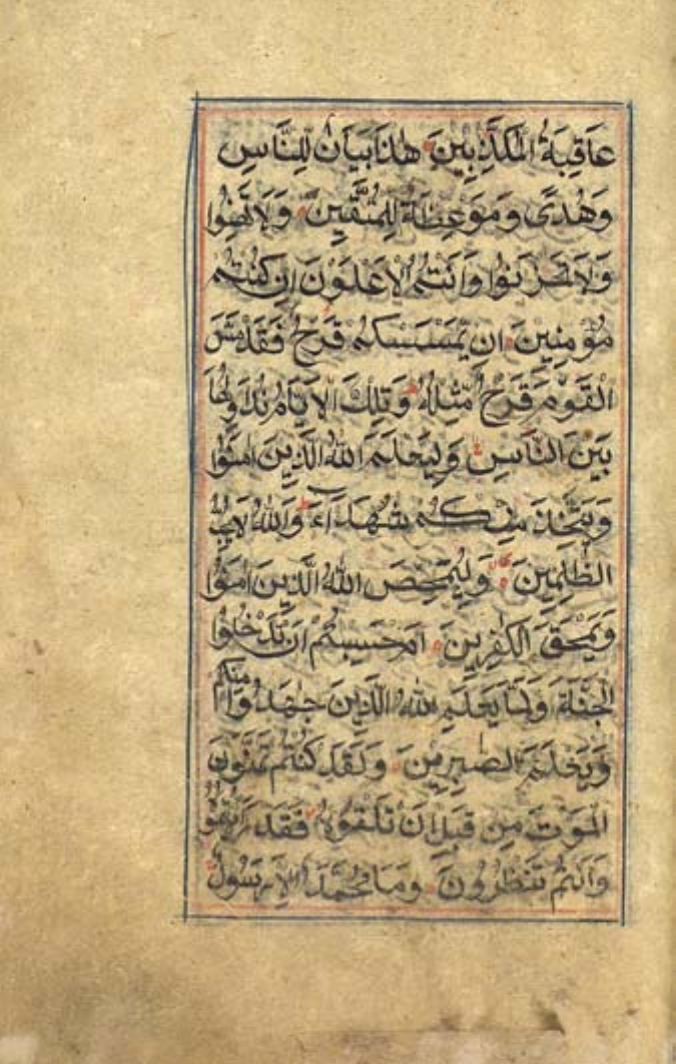 عَاقِبَةُ الْمُكَذِّبِينَ هٰذَا بَيَانٌ لِلنَّاسِ
وَهُدًى وَمَوْعِظَةٌ لِلْمُتَّقِينَ وَلَا تَهِنُوا
وَلَا تَحْزَنُوا وَاَنْتُمُ الْاَعْلَوْنَ اِنْ كُنْتُمْ
مُؤْمِنِينَ اِنْ يَمْسَسْكُمْ قَرْحٌ فَقَدْ مَسَّ
الْقَوْمَ قَرْحٌ مِثْلُهُ وَتِلْكَ الْاَيَّامُ نُدَاوِلُهَا
بَيْنَ النَّاسِ وَلِيَعْلَمَ اللّٰهُ الَّذِينَ اٰمَنُوا
وَيَتَّخِذَ مِنْكُمْ شُهَدَآءَ وَاللّٰهُ لَا يُحِبُّ
الظّٰلِمِينَ وَلِيُمَحِّصَ اللّٰهُ الَّذِينَ اٰمَنُوا
وَيَمْحَقَ الْكٰفِرِينَ اَمْ حَسِبْتُمْ اَنْ تَدْخُلُوا
الْجَنَّةَ وَلَمَّا يَعْلَمِ اللّٰهُ الَّذِينَ جٰهَدُوا مِنْكُمْ
وَيَعْلَمَ الصّٰبِرِينَ وَلَقَدْ كُنْتُمْ تَمَنَّوْنَ
الْمَوْتَ مِنْ قَبْلِ اَنْ تَلْقَوْهُ فَقَدْ رَاَيْتُمُوهُ
وَاَنْتُمْ تَنْظُرُونَ وَمَا مُحَمَّدٌ اِلَّا رَسُولٌ